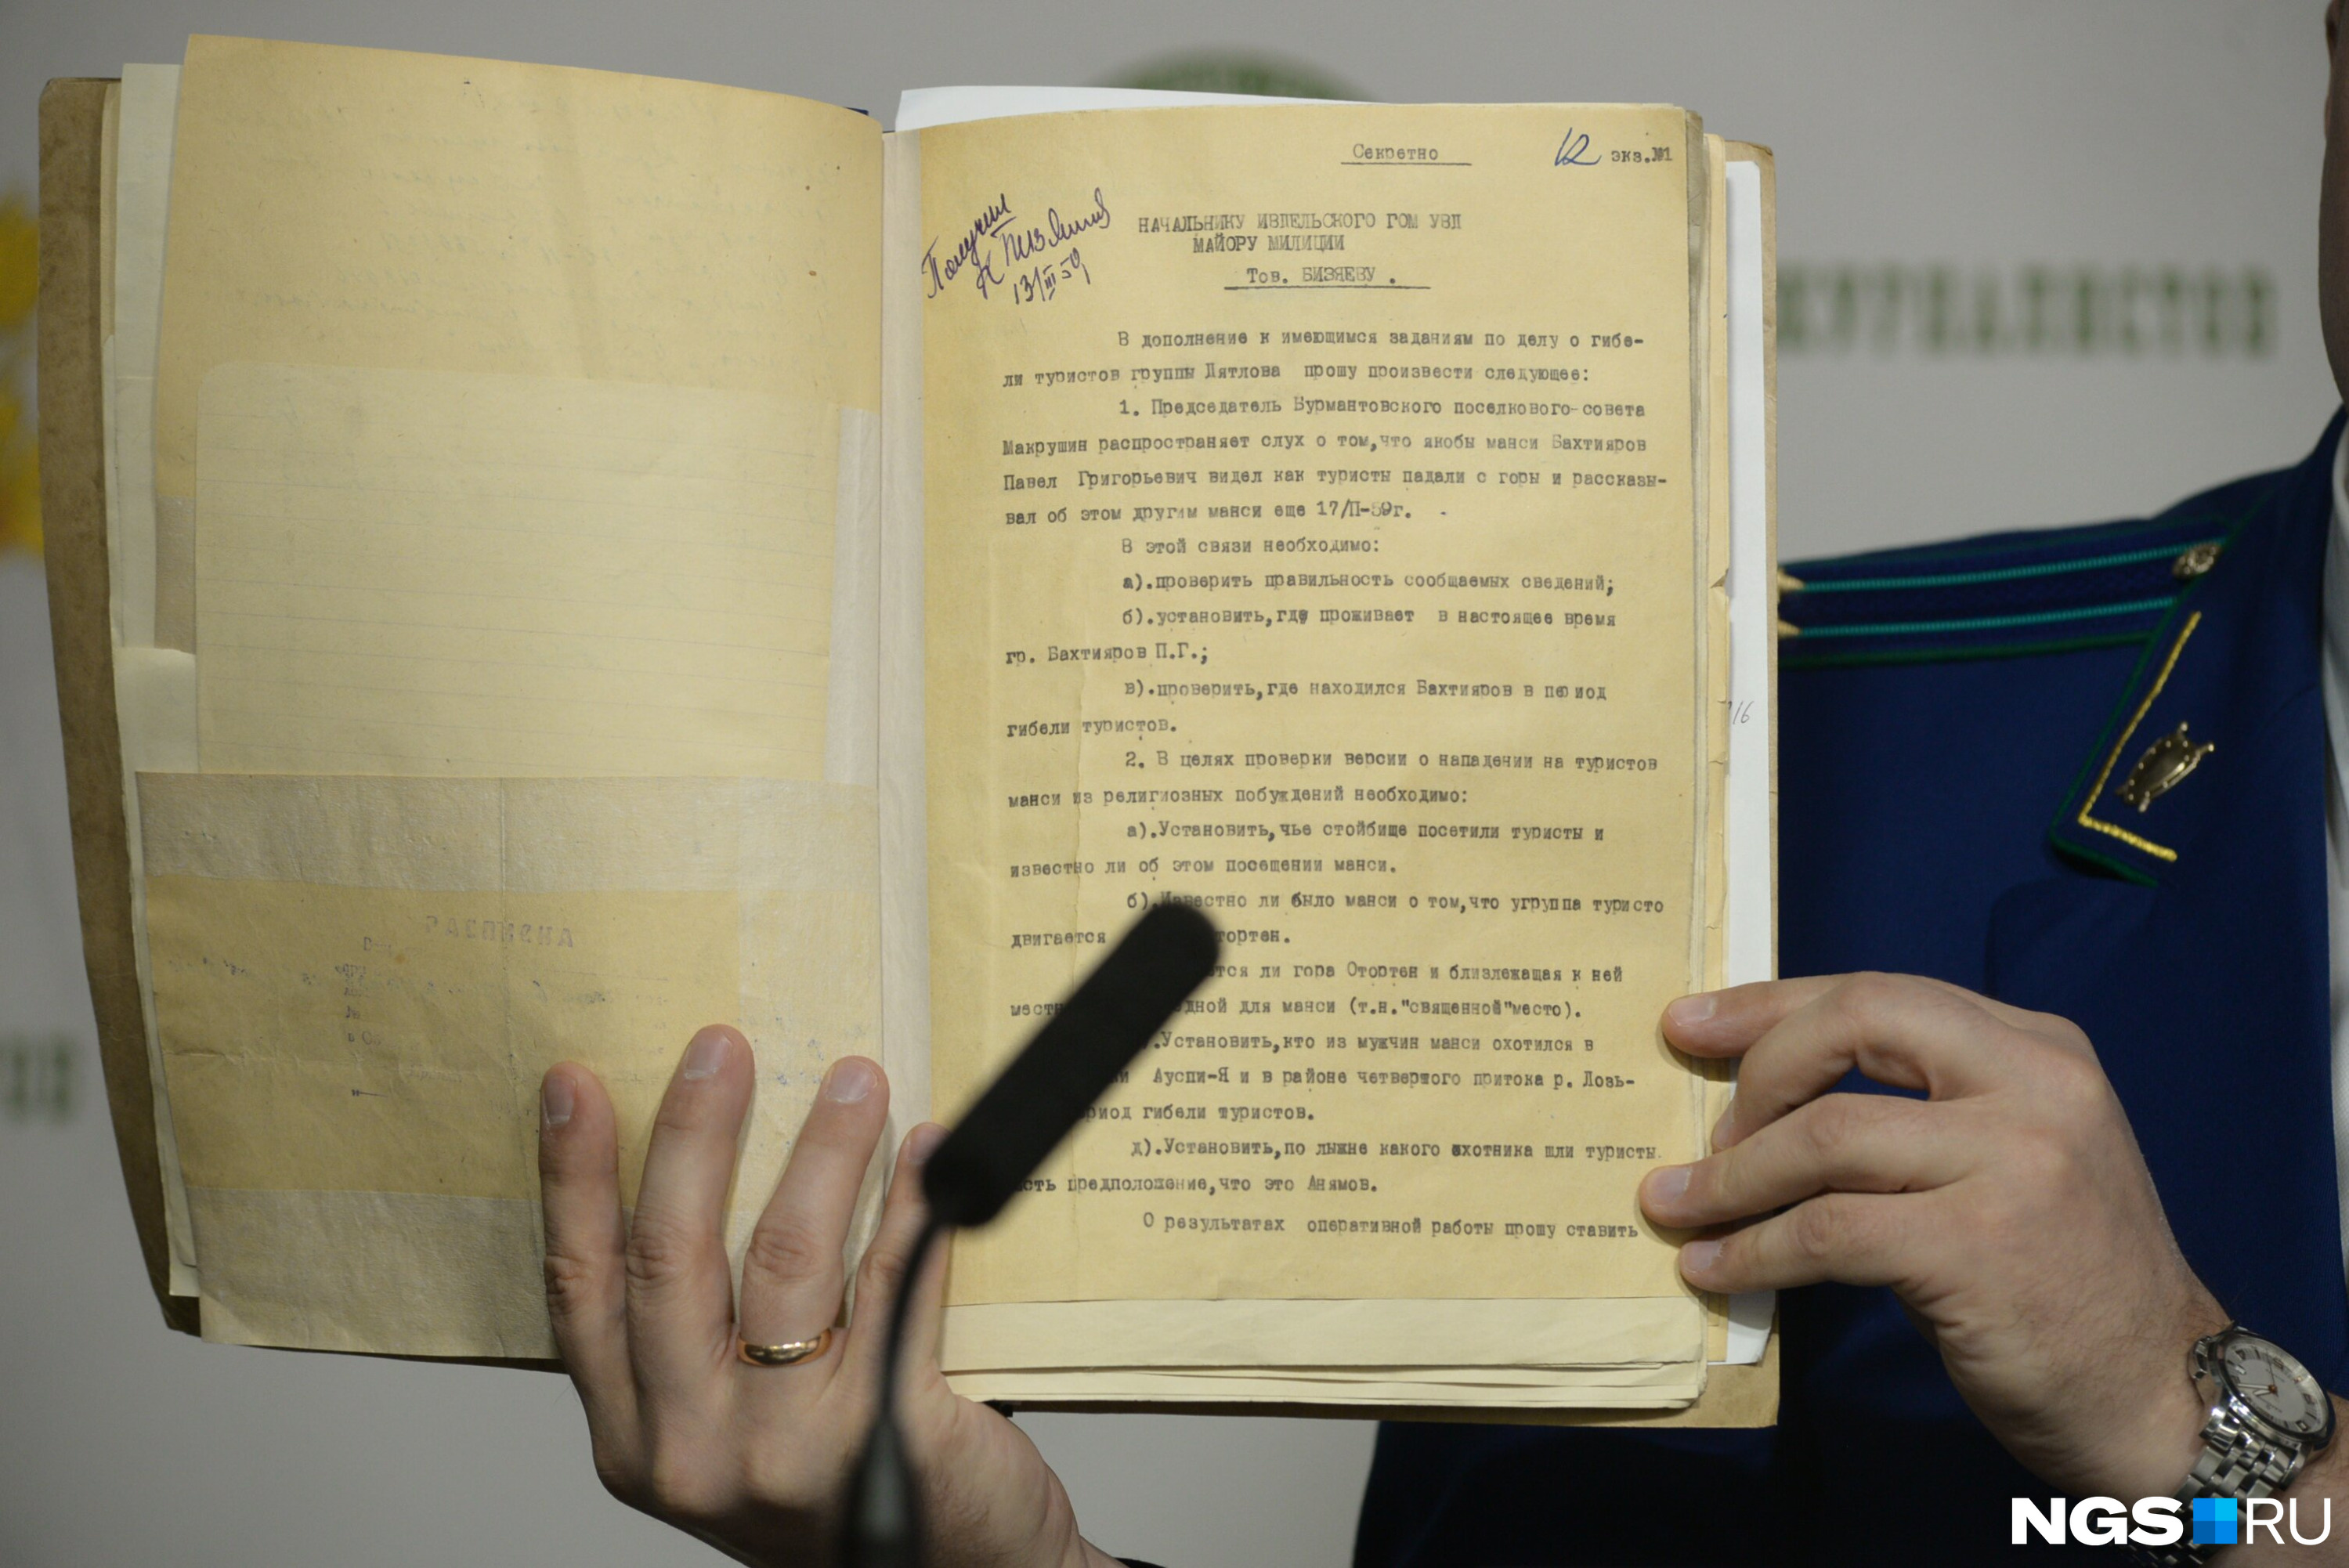 Секретно
12 экз.№1
Получил
13/III-59
НАЧАЛЬНИКУ ИВДЕЛЬСКОГО ГОМ УВД
МАЙОРУ МИЛИЦИИ
Тов. БИЗЯЕВУ .
В дополнение к имеющимся заданиям по делу о гибе-
ли туристов группы Дятлова прошу произвести следующее:
1. Председатель Бурмантовского поселкового-совета
Макрушин распространяет слух о том,что якобы манси Бахтияров
Павел Григорьевич видел как туристы падали с горы и рассказы-
вал об этом другим манси еще 17/П-59г.
В этой связи необходимо:
а).проверить правильность сообщаемых сведений;
б).установить,где проживает в настоящее время
гр. Бахтияров П.Г.;
в).проверить,где находился Бахтияров в период
гибели туристов.
2. В целях проверки версии о нападении на туристов
манси из религиозных побуждений необходимо:
а).Установить,чье стойбище посетили туристы и
известно ли об этом посещении манси.
б).Известно ли было манси о том,что угруппа туристо
двигается тортен.
ли гора Отортен и близлежащая к ней
для манси (т.н."священной"место).
.Установить,кто из мужчин манси охотился в
Ауспи-Я и в районе четвертого притока р. Лозь-
риод гибели туристов.
д).Установить,по лыжне какого охотника шли туристы.
предположение,что это Анямов.
О результатах оперативной работы прошу ставить
16
NGS RU